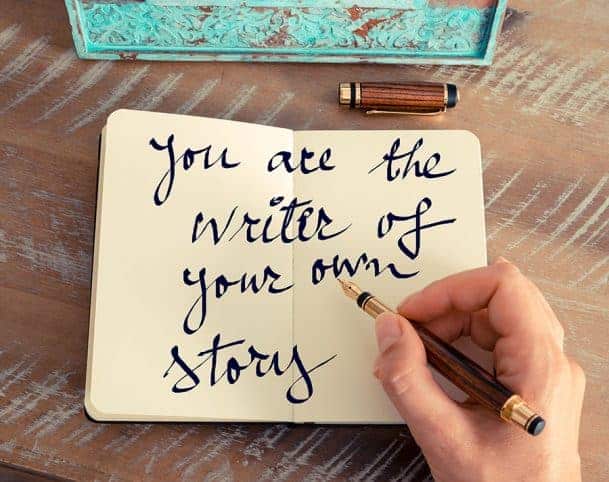 You are the
writer of
your own
story